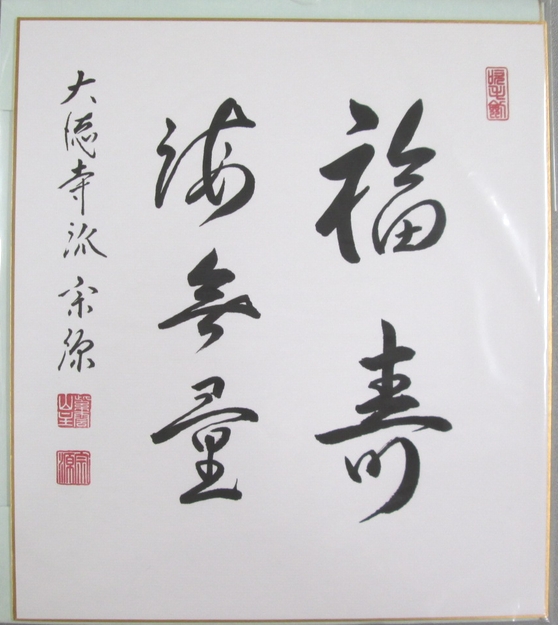 福寿
海無量
大徳寺派 宗源
宗源